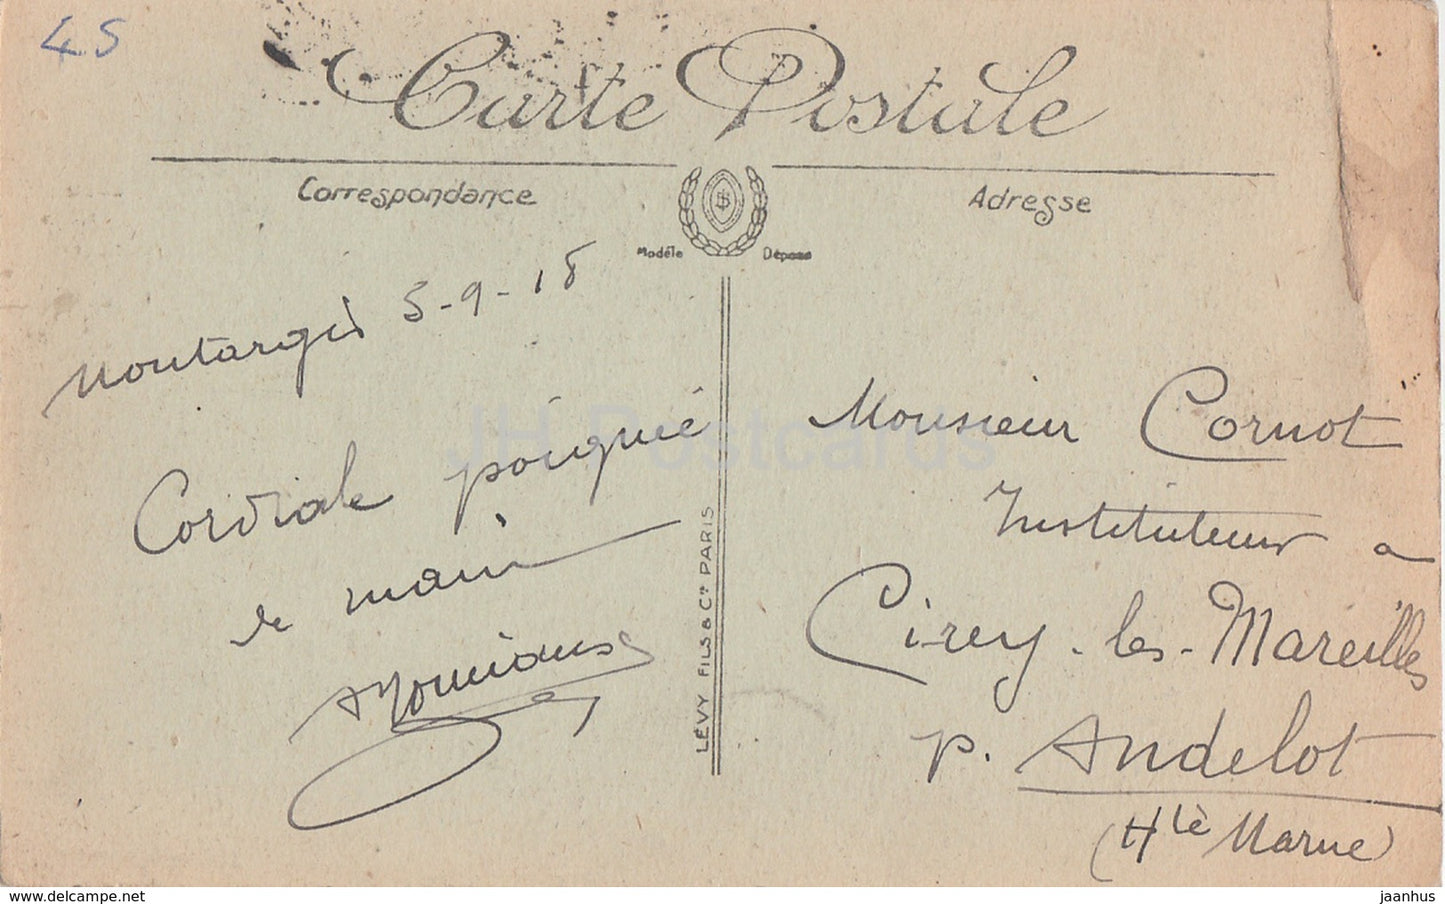 45
Carte Postale
Correspondance
Adresse
Modèle Déposé
Montargis 5-9-18
Cordiale poignée
de main
Monsieur Cornot
Instituteur a
Cirey-les-Mareilles
p. Andelot
(Hte Marne)
LÉVY FILS & Cie PARIS
JH Postcards
www.delcampe.net
jaanhus